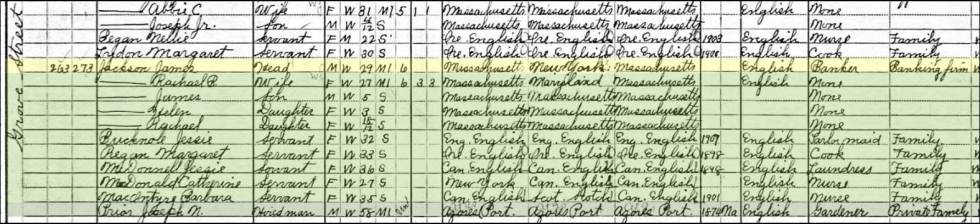 Abbie C. Wife F W 31 M1 5 1 1 Massachusetts Massachusetts Massachusetts English None
Joseph Jr. Son M W /12 S Massachusetts Massachusetts Massachusetts None
Regan Nellie Servant F W 22 S Ire. English Ire. English Ire. English 1903 English Nurse Family
Margaret Servant F W 30 S Ire. English Ire. English Ire. English English Cook Family
263 273 Jackson James Head M W 29 M1 6 Massachusetts New York Massachusetts English Banker Banking firm
Rachael Wife F W 27 M1 6 3 3 Massachusetts Maryland Massachusetts English None
James Son M W 5 S Massachusetts Massachusetts Massachusetts None
Helen Daughter F W 3 S Massachusetts Massachusetts Massachusetts None
Rachael Daughter F W /12 S Massachusetts Massachusetts Massachusetts None
Jessie Servant F W 32 S Eng. English Eng. English Eng. English 1907 English Parlor maid Family
Regan Margaret Servant F W 33 S Ire. English Ire. English Ire. English 1898 English Cook Family
McDonnell Jessie Servant F W 36 S Can. English Can. English Can. English English Laundress Family
MacDonald Catherine Servant F W 27 S New York Can. English Can. English English Nurse Family
MacIntyre Barbara Servant F W 35 S Can. English 1901 English Nurse Family
Prior Joseph N. M W 58 M1 Azores Port. Azores Port. Azores Port. 1874 Na English Gardener Private Family
Grove Street